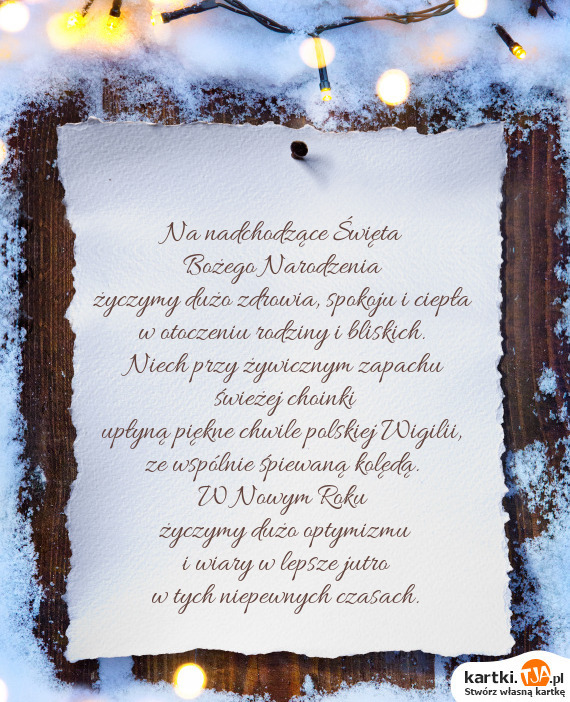 Na nadchodzące Święta
Bożego Narodzenia
życzymy dużo zdrowia, spokoju i ciepła
w otoczeniu rodziny i bliskich.
Niech przy żywicznym zapachu
świeżej choinki
upłyną piękne chwile polskiej Wigilii,
ze wspólnie śpiewaną kolędą.
W Nowym Roku
życzymy dużo optymizmu
i wiary w lepsze jutro
w tych niepewnych czasach.
kartki.TJA.pl
Stwórz własną kartkę